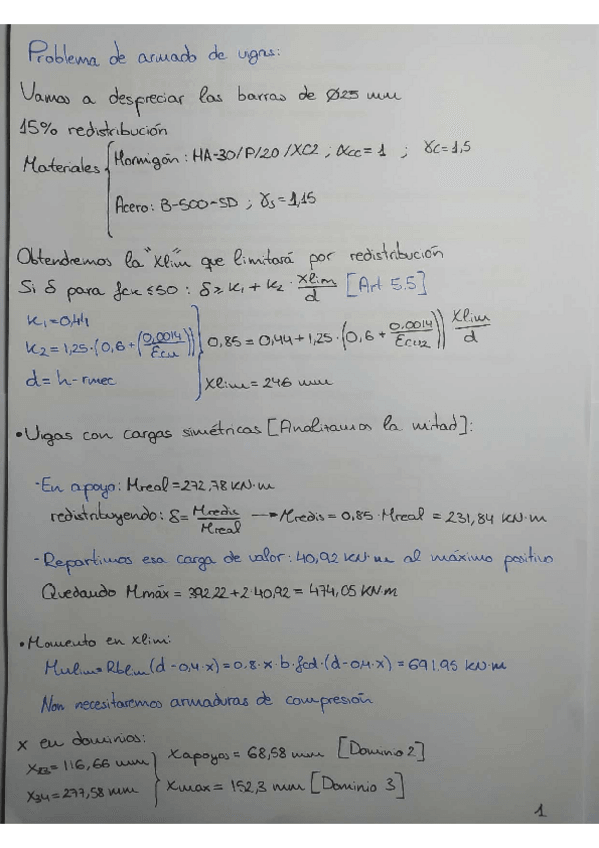 Problema de armado de vigas:
Vamos a despreciar las barras de Ø25 mm
15% redistribución
Materiales { Hormigón: HA-30/P/20/XC2 ; αcc = 1 ; γc = 1,5
Acero: B-500-SD ; γs = 1,15
Obtendremos la "Xlim" que limitará por redistribución
Si δ para fck ≤ 50 : δ ≥ K1 + K2 · Xlim/d [Art 5.5]
K1 = 0,44
K2 = 1,25·(0,6 + (0,0014/Ecu))
d = h - rmec
0,85 = 0,44 + 1,25·(0,6 + 0,0014/Ecu2)) Xlim/d
Xlim = 246 mm
• Vigas con cargas simétricas [Analizamos la mitad]:
- En apoyo: Mreal = 272,78 KN·m
redistribuyendo: δ = Mredis/Mreal → Mredis = 0,85 · Mreal = 231,84 KN·m
- Repartimos esa carga de valor: 40,92 KN·m al máximo positivo
Quedando Mmáx = 392.22 + 2·40,92 = 474,05 KN·m
• Momento en Xlim:
Mulim = Rblim (d - 0,4·x) = 0.8·x·b·fcd·(d - 0,4·x) = 691.95 KN·m
Non necesitaremos armaduras de compresión
X en dominios:
X23 = 116,66 mm
X34 = 277,58 mm
Xapoyos = 68,58 mm [Dominio 2]
Xmax = 152,3 mm [Dominio 3]
1